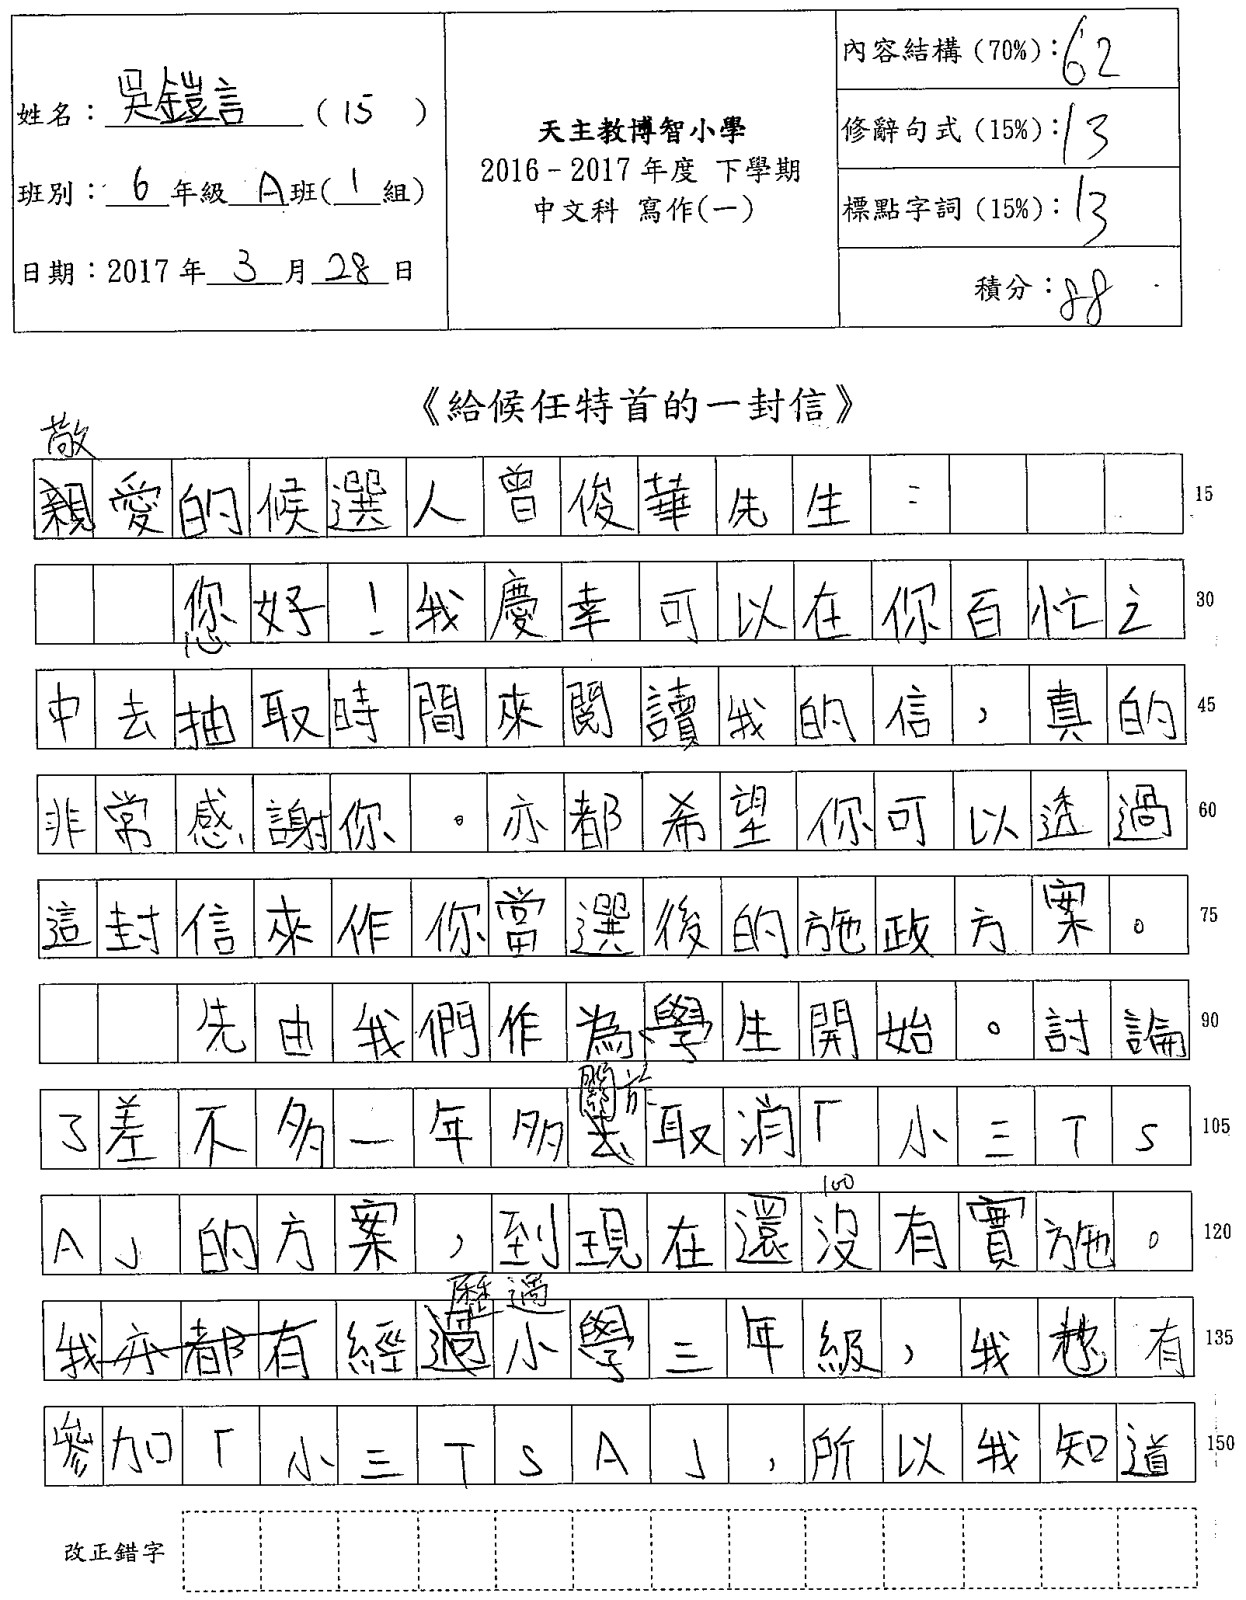 內容結構 (70%):62
姓名：吳鎧言 (15)
天主教博智小學
修辭句式 (15%):13
2016－2017 年度 下學期
班別：6年級A班(1組)
中文科 寫作(一)
標點字詞 (15%):13
日期：2017 年3月28日
積分：88
《給候任特首的一封信》
敬
親愛的候選人曾俊華先生： 15
您好！我慶幸可以在你百忙之 30
中去抽取時間來閱讀我的信，真的 45
非常感謝你。亦都希望你可以透過 60
這封信來作你當選後的施政方案。 75
先由我們作為學生開始。討論 90
關於
了差不多一年多去取消「小三TS 105
100
A」的方案，到現在還沒有實施。 120
歷過
我亦都有經過小學三年級，我想有 135
參加「小三TSA」，所以我知道 150
改正錯字